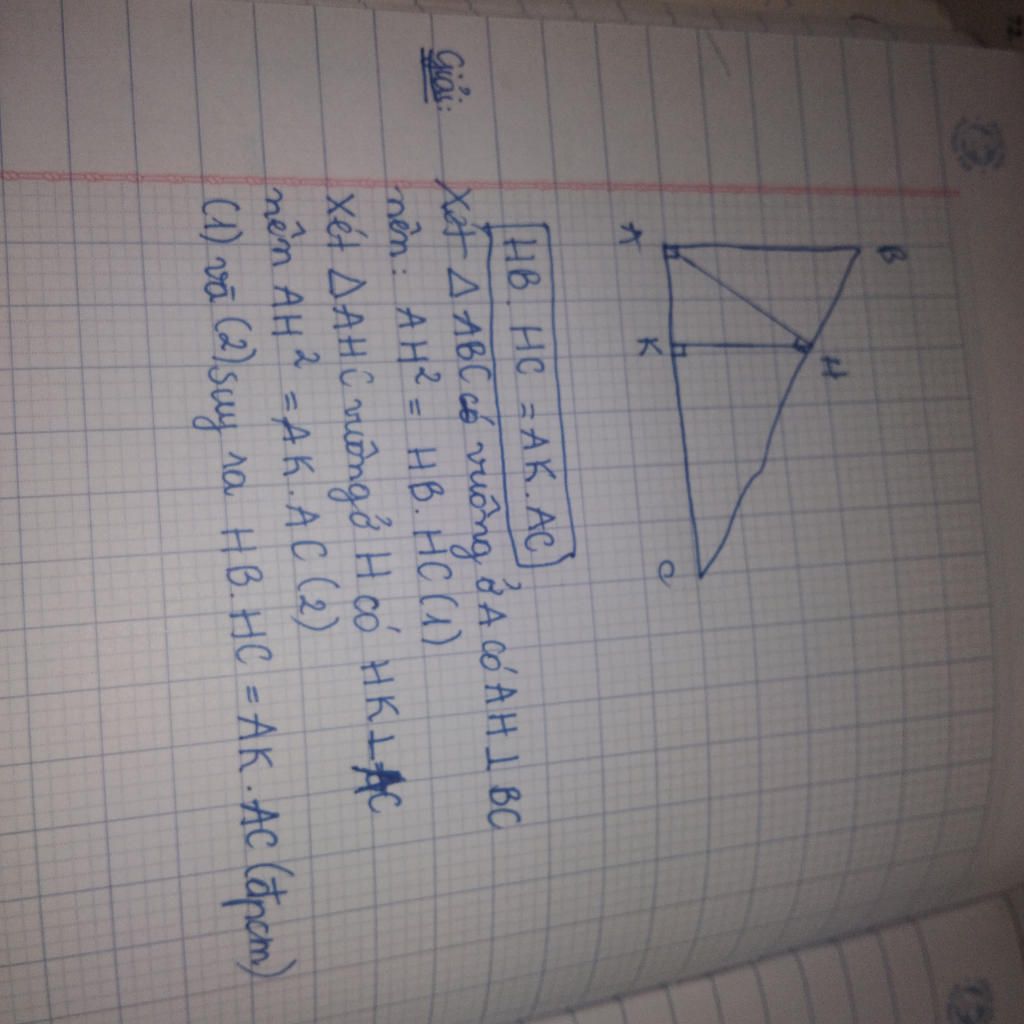 B
A
H
K
C
HB. HC = AK. AC
Giải:
Xét △ ABC có vuông ở A có AH ⊥ BC
nên: AH² = HB. HC (1)
Xét △AHC vuông ở H có HK ⊥ AC
nên AH² = AK. AC (2)
(1) và (2) suy ra HB. HC = AK. AC (đpcm)